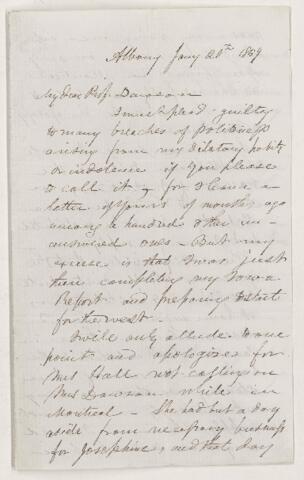 Albany Jany 20th 1859
My dear Prof. Dawson
I must plead guilty
to many breaches of politeness
arising from my dilatory habits
or indolence if you please
to call it, for I have a
letter of yours of months ago
among a hundred other un-
answered ones – But my
excuse is that I was just
then completing my Iowa
Report and preparing to start
for the west.
I will only allude to one
point and apologize for
Mrs Hall not calling on
Mrs Dawson while in
Montreal – She had but a day
aside from necessary business
for Josephine, and that day